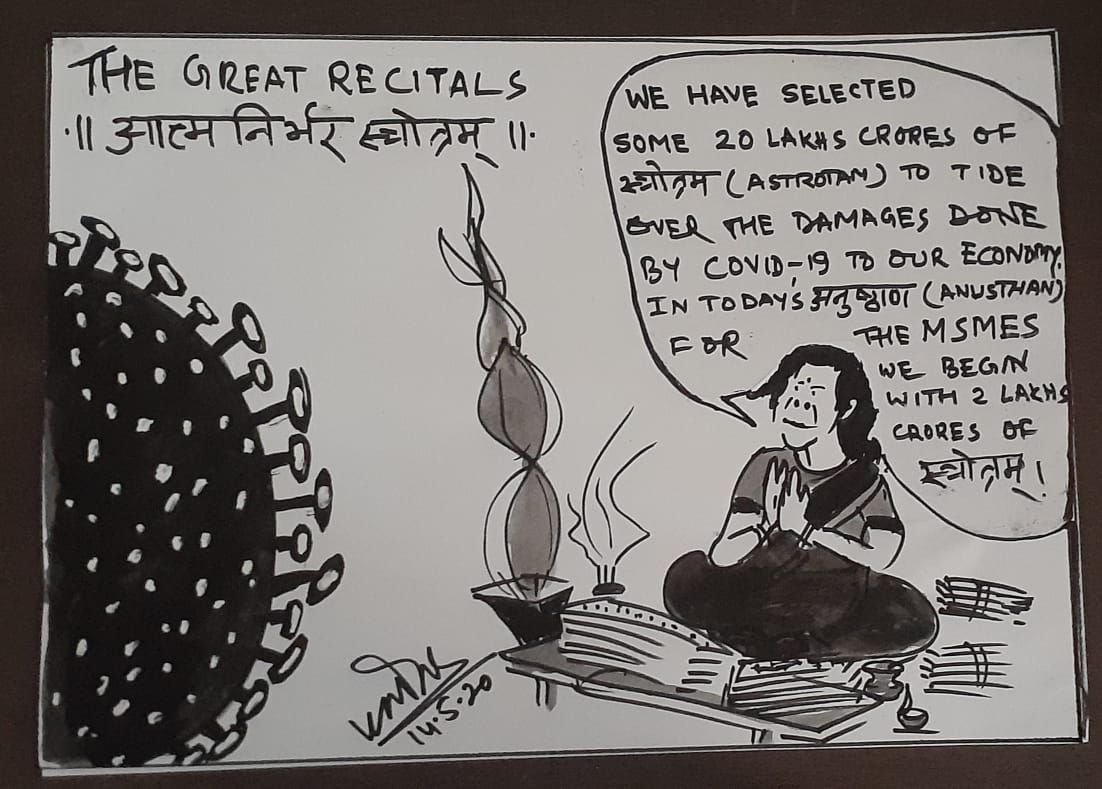 THE GREAT RECITALS
॥ आत्म निर्भर स्त्रोत्रम् ॥
WE HAVE SELECTED
SOME 20 LAKHS CRORES OF
स्त्रोत्रम (ASTROTAM) TO TIDE
OVER THE DAMAGES DONE
BY COVID-19 TO OUR ECONOMY.
IN TODAY'S अनुष्ठाण (ANUSTHAN)
FOR THE MSMES
WE BEGIN
WITH 2 LAKHS
CRORES OF
स्त्रोत्रम् !
14.5.20